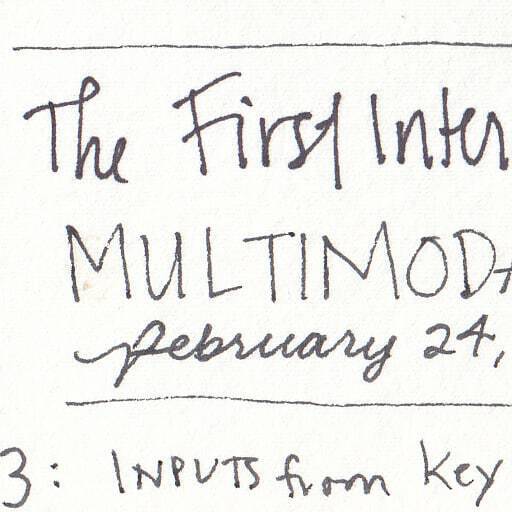 The First Inter
MULTIMODA
february 24,
3: INPUTS from Key